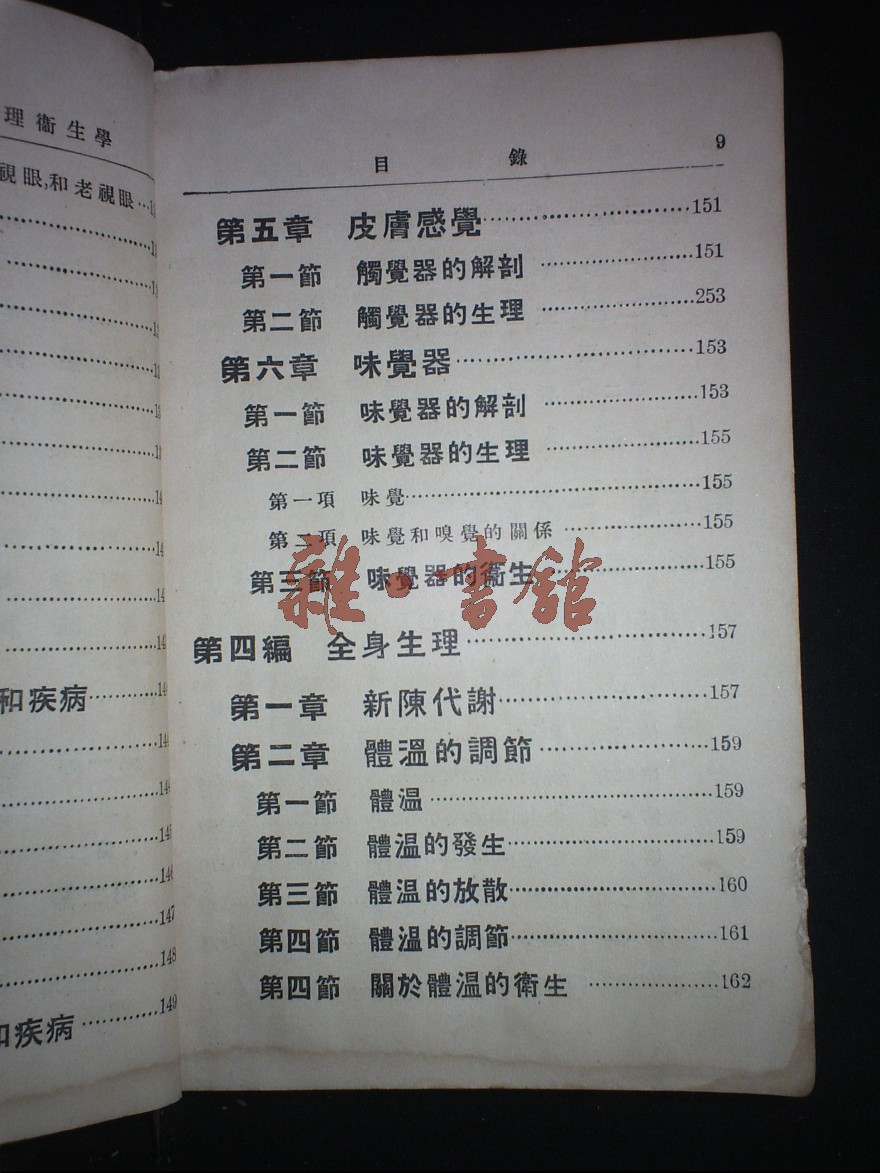 理衞生學
視眼,和老視眼
和疾病
147
148
149
和疾病
目錄 9
第五章 皮膚感覺 151
第一節 觸覺器的解剖 151
第二節 觸覺器的生理 253
第六章 味覺器 153
第一節 味覺器的解剖 153
第二節 味覺器的生理 155
第一項 味覺 155
第二項 味覺和嗅覺的關係 155
第三節 味覺器的衞生 155
雜·書館
第四編 全身生理 157
第一章 新陳代謝 157
第二章 體溫的調節 159
第一節 體温 159
第二節 體温的發生 159
第三節 體温的放散 160
第四節 體温的調節 161
第四節 關於體温的衛生 162